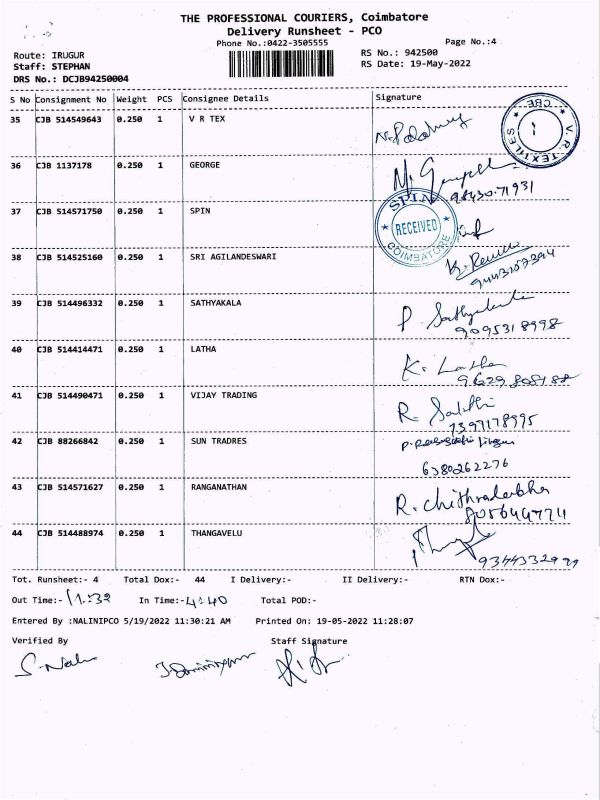 THE PROFESSIONAL COURIERS, Coimbatore
Delivery Runsheet - PCO
Phone No.:0422-3505555 Page No.:4
Route: IRUGUR RS No.: 942500
Staff: STEPHAN RS Date: 19-May-2022
DRS No.: DCJB94250004
S No Consignment No Weight PCS Consignee Details Signature
35 CJB 514549643 0.250 1 V R TEX
V.R.TEXTILES CBE
36 CJB 1137178 0.250 1 GEORGE
98430-71931
37 CJB 514571750 0.250 1 SPIN
SPIN RECEIVED COIMBATORE
38 CJB 514525160 0.250 1 SRI AGILANDESWARI
9443157394
39 CJB 514496332 0.250 1 SATHYAKALA P. Sathyakala
9095318998
40 CJB 514414471 0.250 1 LATHA K. Latha
41 CJB 514490471 0.250 1 VIJAY TRADING R. Sakthi
7397178995
42 CJB 88266842 0.250 1 SUN TRADRES
6380262276
43 CJB 514571627 0.250 1 RANGANATHAN R. Chithradevi
44 CJB 514488974 0.250 1 THANGAVELU
Tot. Runsheet:- 4 Total Dox:- 44 I Delivery:- II Delivery:- RTN Dox:-
Out Time:- 11:32 In Time:- 4:40 Total POD:-
Entered By :NALINIPCO 5/19/2022 11:30:21 AM Printed On: 19-05-2022 11:28:07
Verified By Staff Signature